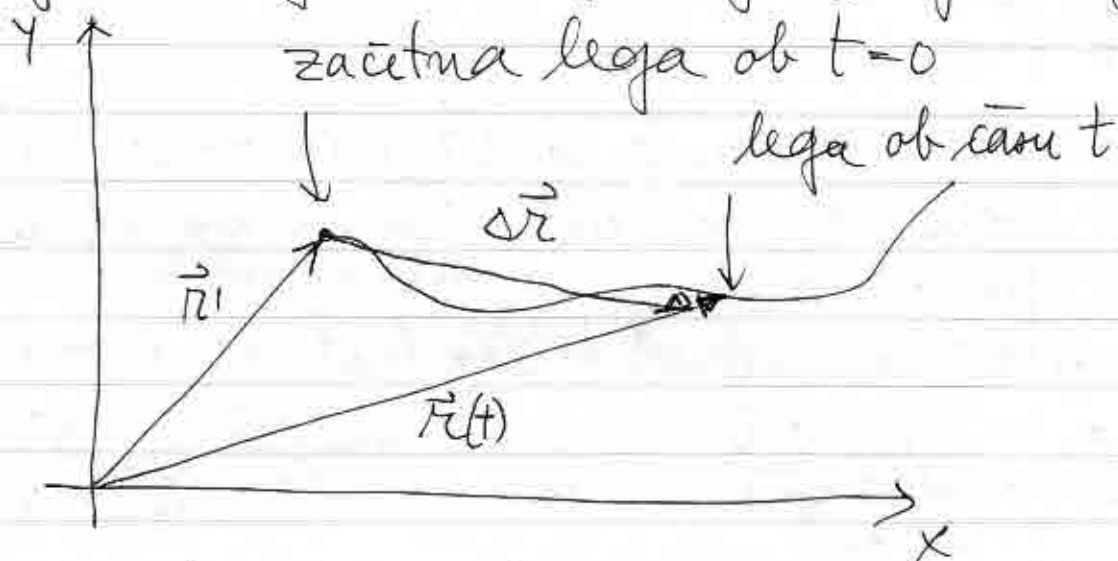 y
začetna lega ob t=0
lega ob času t
Δr⃗
r⃗'
r⃗(t)
x